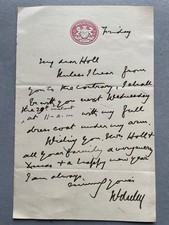 Friday
My dear Holl
Unless I hear from
you to the contrary, I shall
be with you next Wednesday
the 29th inst
at 11-a.m with my full
dress coat under my arm.
Wishing you Mrs Holl &
all your family a very merry
Xmas & a happy new year
I am always
yours